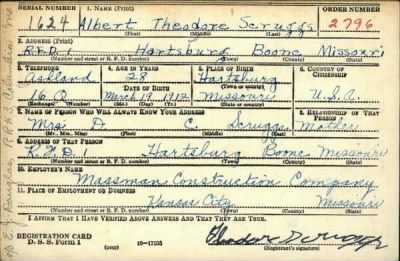 SERIAL NUMBER 1. NAME (Print) ORDER NUMBER
1624 Albert Theodore Scruggs 2796
(First) (Middle) (Last)
2. ADDRESS (Print)
R.F.D. 1 Hartsburg Boone Missouri
(Number and street or R. F. D. number) (Town) (County) (State)
3. TELEPHONE 4. AGE IN YEARS 5. PLACE OF BIRTH 6. COUNTRY OF CITIZENSHIP
Ashland 28 Hartsburg
DATE OF BIRTH (Town or county)
16 O March 19 1912 Missouri U.S.A.
(Exchange) (Number) (Mo.) (Day) (Yr.) (State or country)
7. NAME OF PERSON WHO WILL ALWAYS KNOW YOUR ADDRESS 8. RELATIONSHIP OF THAT PERSON
Mrs D C. Scruggs Mother
(Mr., Mrs., Miss) (First) (Middle) (Last)
9. ADDRESS OF THAT PERSON
R.F.D. Hartsburg Boone Missouri
(Number and street or R. F. D. number) (Town) (County) (State)
10. EMPLOYER'S NAME
Massman Construction Company
11. PLACE OF EMPLOYMENT OR BUSINESS
Kansas City Missouri
(Number and street or R. F. D. number) (Town) (County) (State)
I AFFIRM THAT I HAVE VERIFIED ABOVE ANSWERS AND THAT THEY ARE TRUE.
REGISTRATION CARD
D. S. S. FORM 1 (over) 16—17105 Theodore Scruggs
(Registrant's signature)